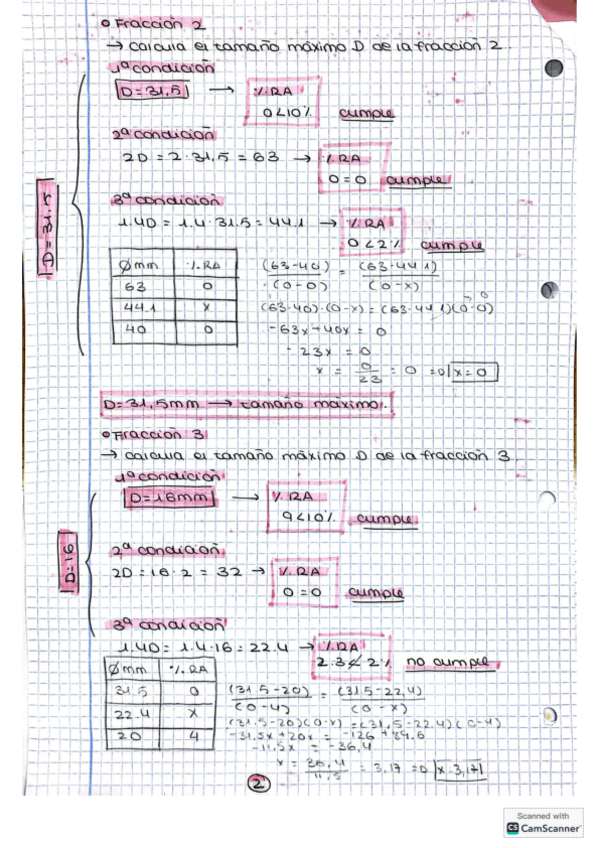 Fracción 2
→ Calcula el tamaño máximo D de la fracción 2.
1ª condición
D=31,5 → %RA
0<10% cumple
2ª condición
2D = 2·31,5 = 63 → %RA
0=0 cumple
3ª condición
1.4D = 1.4·31.5 = 44.1 → %RA
0<2% cumple
D=31.5
Ømm %RA
63 0
44.1 x
40 0
(63-40)/(0-0) = (63-44.1)/(0-x)
(63-40)·(0-x) = (63-44.1)(0-0)
-63x+40x = 0
-23x = 0
x = 0/23 = 0 ⇒ x=0
D=31,5mm → tamaño máximo.
Fracción 3
→ Calcula el tamaño máximo D de la fracción 3.
1ª condición
D=16mm → %RA
9<10% cumple
2ª condición
2D=16·2 = 32 → %RA
0=0 cumple
D=16
3ª condición
1.4D = 1.4·16 = 22.4 → %RA
2.3≮2% no cumple
Ømm %RA
31.5 0
22.4 x
20 4
(31.5-20)/(0-4) = (31.5-22,4)/(0-x)
(31.5-20)(0-x) = (31,5-22.4)(0-4)
-31,5x+20x = -126+89,6
-11,5x = -36,4
x = 36,4/11,5 = 3,17 ⇒ x=3,17
2
Scanned with
CS CamScanner